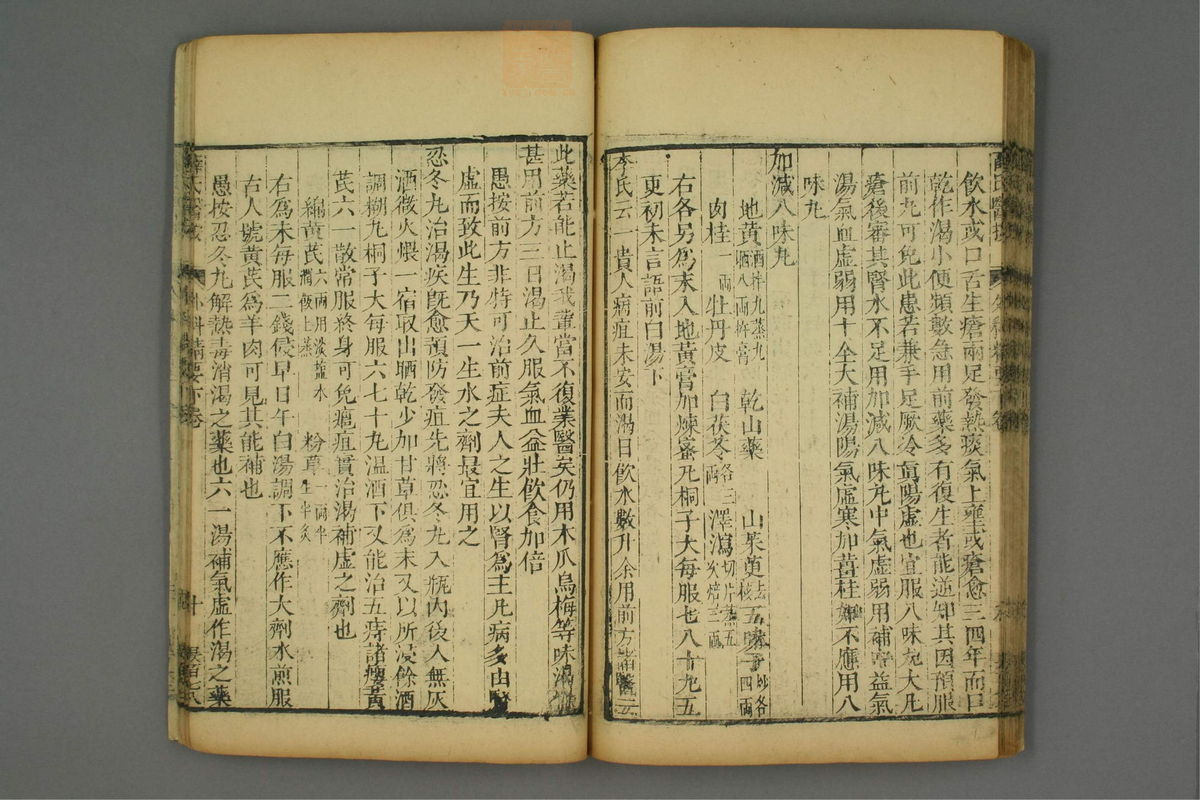 飲水或口舌生瘡兩足發熱痰氣上壅或瘡愈三四年而口
乾作渴小便頻數急用前藥多有復生者能逆知其因預服
前丸可免此患若兼手足厥冷眞陽虛也宜服八味丸大凡
瘡後審其腎水不足用加減八味丸中氣虛弱用補中益氣
湯氣血虛弱用十全大補湯陽氣虛寒加薑桂如不應用八
味丸
加減八味丸
地黃酒拌九蒸九晒八兩杵膏 乾山藥 山茱萸去核 五味子炒各四兩
肉桂一兩 牡丹皮 白茯苓各三兩 澤瀉切片蒸五次焙三兩
右各另爲末入地黃膏加煉蜜丸桐子大每服七八十丸五
更初未言語前白湯下
李氏云一貴人病疽未安而渴日飲水數升余用前方諸醫云
此藥若能止渴我輩當不復業醫矣仍用木瓜烏梅等味渴
甚用前方三日渴止久服氣血益壯飲食加倍
愚按前方非特可治前症夫人之生以腎爲主凡病多由腎
虛而致此生乃天一生水之劑最宜用之
忍冬丸治渴疾旣愈預防發疽先將忍冬丸入瓶內後入無灰
酒微火煨一宿取出晒乾少加甘草俱爲末又以所浸餘酒
調糊丸桐子大每服六七十丸溫酒下又能治五痔諸瘻黃
芪六一散常服終身可免癰疽實治渴補虛之劑也
綿黃芪六兩用淡鹽水潤飯上蒸 粉草一兩半生半炙
右爲末每服二錢侵早日午白湯調下不應作大劑水煎服
古人號黃芪爲羊肉可見其能補也
愚按忍冬丸解熱毒消渴之藥也六一湯補氣虛作渴之藥
薛氏醫按
外科精要下卷
十